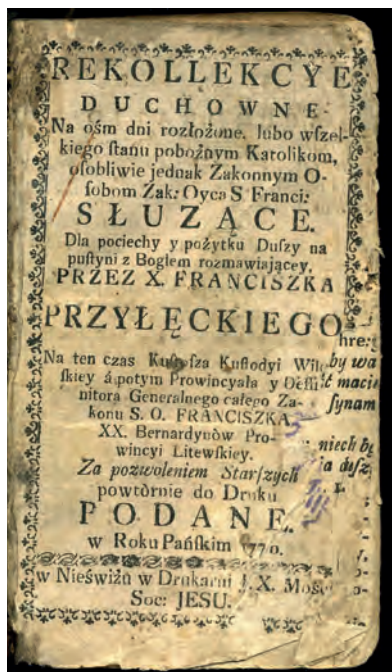 REKOLLEKCYE
DUCHOWNE
Na ośm dni rozłożone, lubo wſzel-
kiego ſtanu pobożnym Katolikom,
oſobliwie jednak Zakonnym O-
ſobom Zak: Oyca S Franci:
SŁUZĄCE.
Dla pociechy y pożytku Duſzy na
puſtyni z Bogiem rozmawiającey,
PRZEZ X. FRANCISZKA
PRZYŁĘCKIEGO
hre:
Na ten czas Kuſtoſza Kuſtodyi
by wa
ſkiey á potym Prowincyała y
macie
nitora Generalnego całego Za-
ſynam
konu S. O. FRANCISZKA
XX. Bernardynòw Pro-
niech
wincyi Litewſkiey.
duſz
Za pozwoleniem Starſzych
powtòrnie do Druku
PODANE.
w Roku Pańſkim 1770.
w Nieświżu w Drukarni J. X.
Soc: JESU.